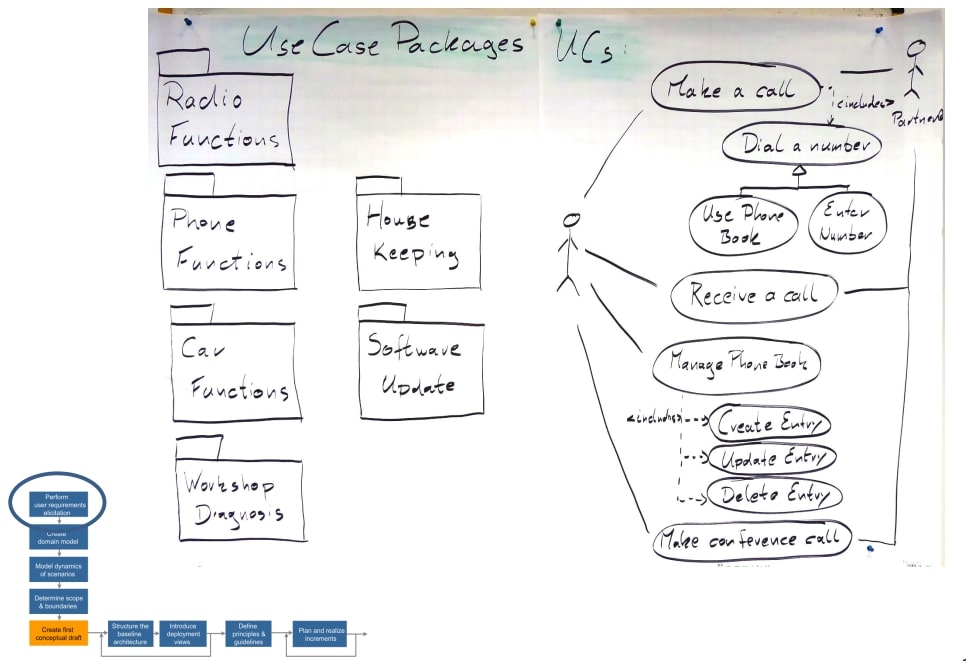 Use Case Packages
UCs:
Radio
Functions
Phone
Functions
House
Keeping
Car
Functions
Software
Update
Workshop
Diagnosis
Make a call
<includes>
Partner
Dial a number
Use Phone
Book
Enter
Number
Receive a call
Manage Phone Book
<includes>
Create Entry
Update Entry
Delete Entry
Make conference call
Perform
user requirements
elicitation
Create
domain model
Model dynamics
of scenarios
Determine scope
& boundaries
Create first
conceptual draft
Structure the
baseline
architecture
Introduce
deployment
views
Define
principles &
guidelines
Plan and realize
increments